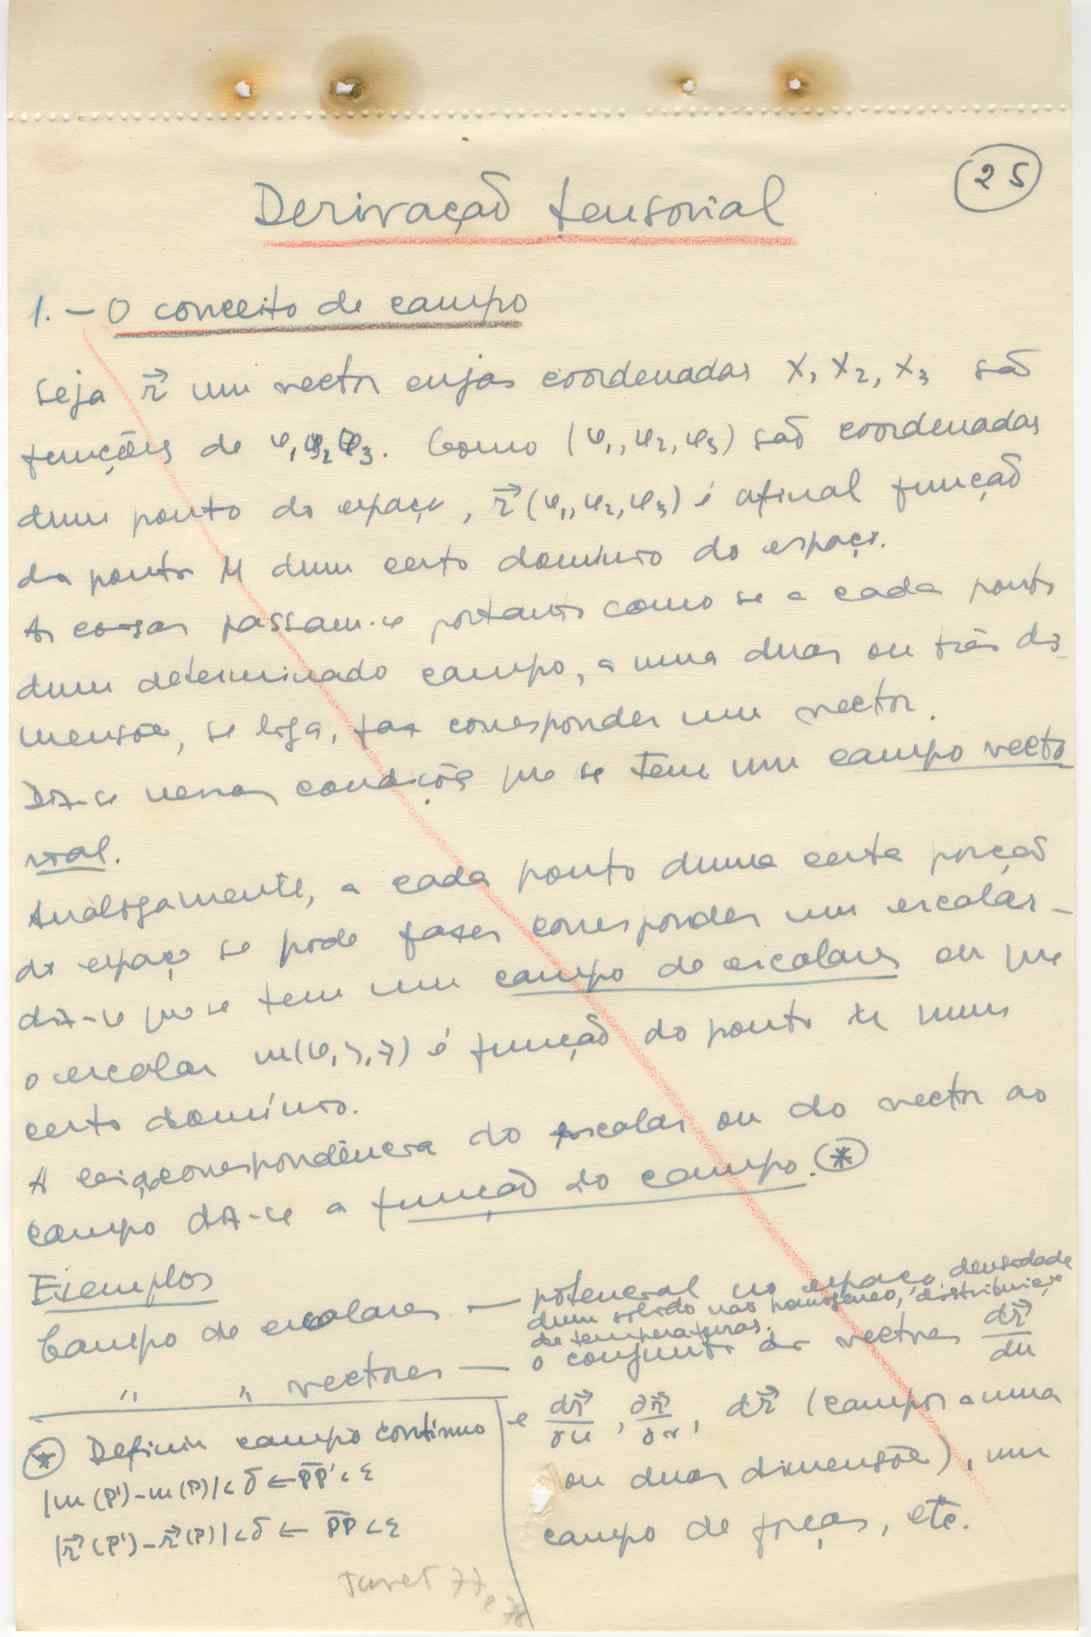 25
Derivação tensorial
1. - O conceito de campo
Seja r⃗ um vector cujas coordenadas x₁ x₂, x₃ são
funções de φ₁φ₂φ₃. Como (φ₁,φ₂,φ₃) são coordenadas
dum ponto do espaço, r⃗(φ₁,φ₂,φ₃) é afinal função
do ponto M dum certo domínio do espaço.
As cousas passam-se portanto como se a cada ponto
dum determinado campo, a uma duas ou três di-
mensões, se liga, faz corresponder um vector.
Diz-se nessas condições que se tem um campo vecto
rial.
Analogamente, a cada ponto duma certa porção
do espaço se pode fazer corresponder um escalar -
diz-se que se tem um campo de escalares ou que
o escalar m( ) é função do ponto M num
certo domínio.
A correspondência do escalar ou do vector ao
campo dá-se a função do campo. (*)
Exemplos
Campo de escalares - potencial no espaço, densidade
dum sólido não homogéneo, distribuição
de temperaturas.
" " vectores - o conjunto de vectores dr⃗/du
e ∂r⃗/∂u, ∂r⃗/∂v, dr⃗ (campos a uma
ou duas dimensões), um
campo de forças, etc.
(*) Definir campo contínuo
|m(P')-m(P)|<δ ← PP'<ε
|r⃗(P')-r⃗(P)|<δ ← PP<ε
77 e 78